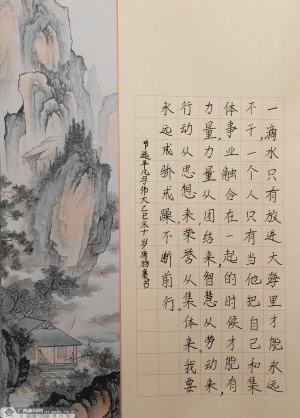 一滴水只有放进大海里才能永远
不干，一个人只有当他把自己和集
体事业融合在一起的时候才能有
力量。力量从团结来，智慧从劳动来，
行动从思想来，荣誉从集体来。我要
永远戒骄戒躁，不断前行。
节选平凡与伟大乙巳又十岁